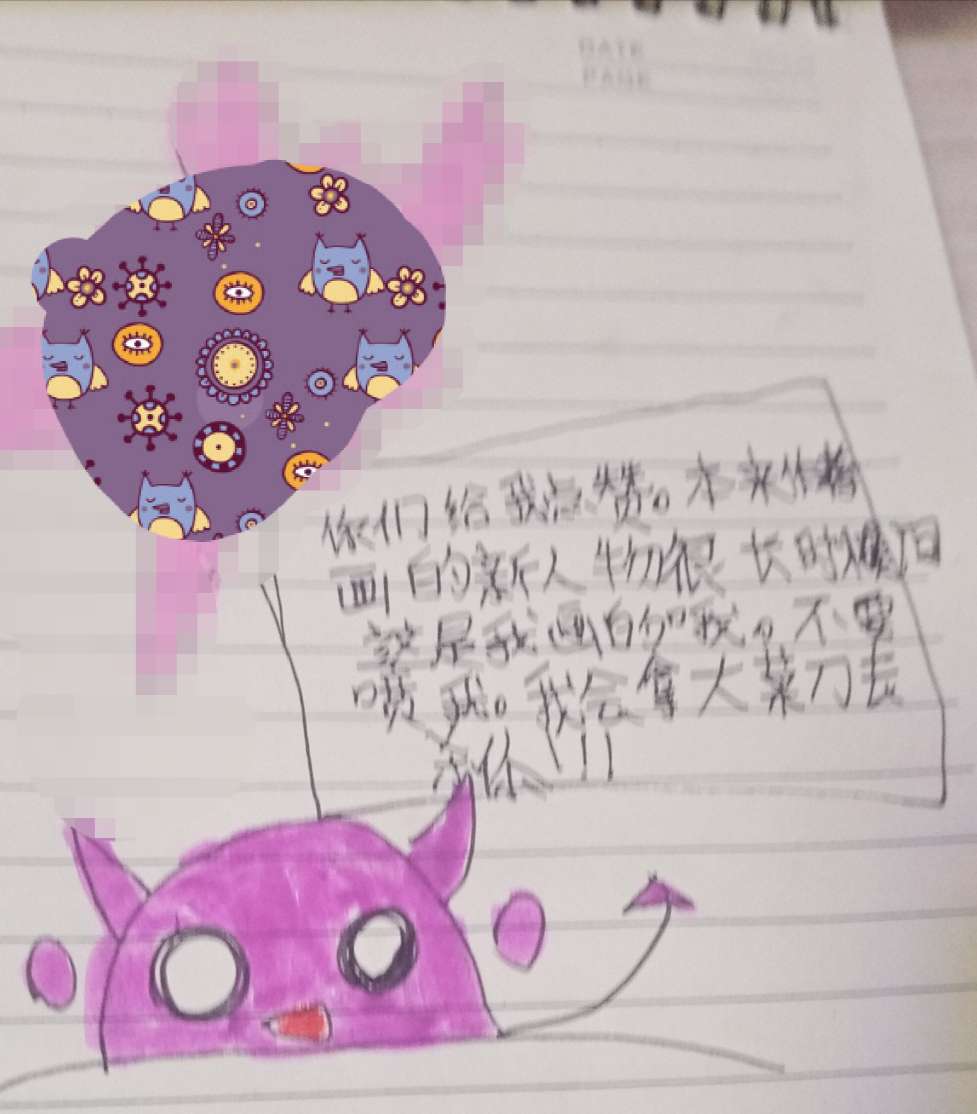 DATE
PAGE
你们给我点赞。本来作者
画的新人物很长时
是我画的如我。不要
喷我。我会拿大菜刀去
你!!!